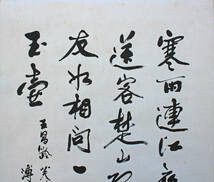 寒雨連江
送客楚山
友如相問一
玉壺
王昌齡
溥